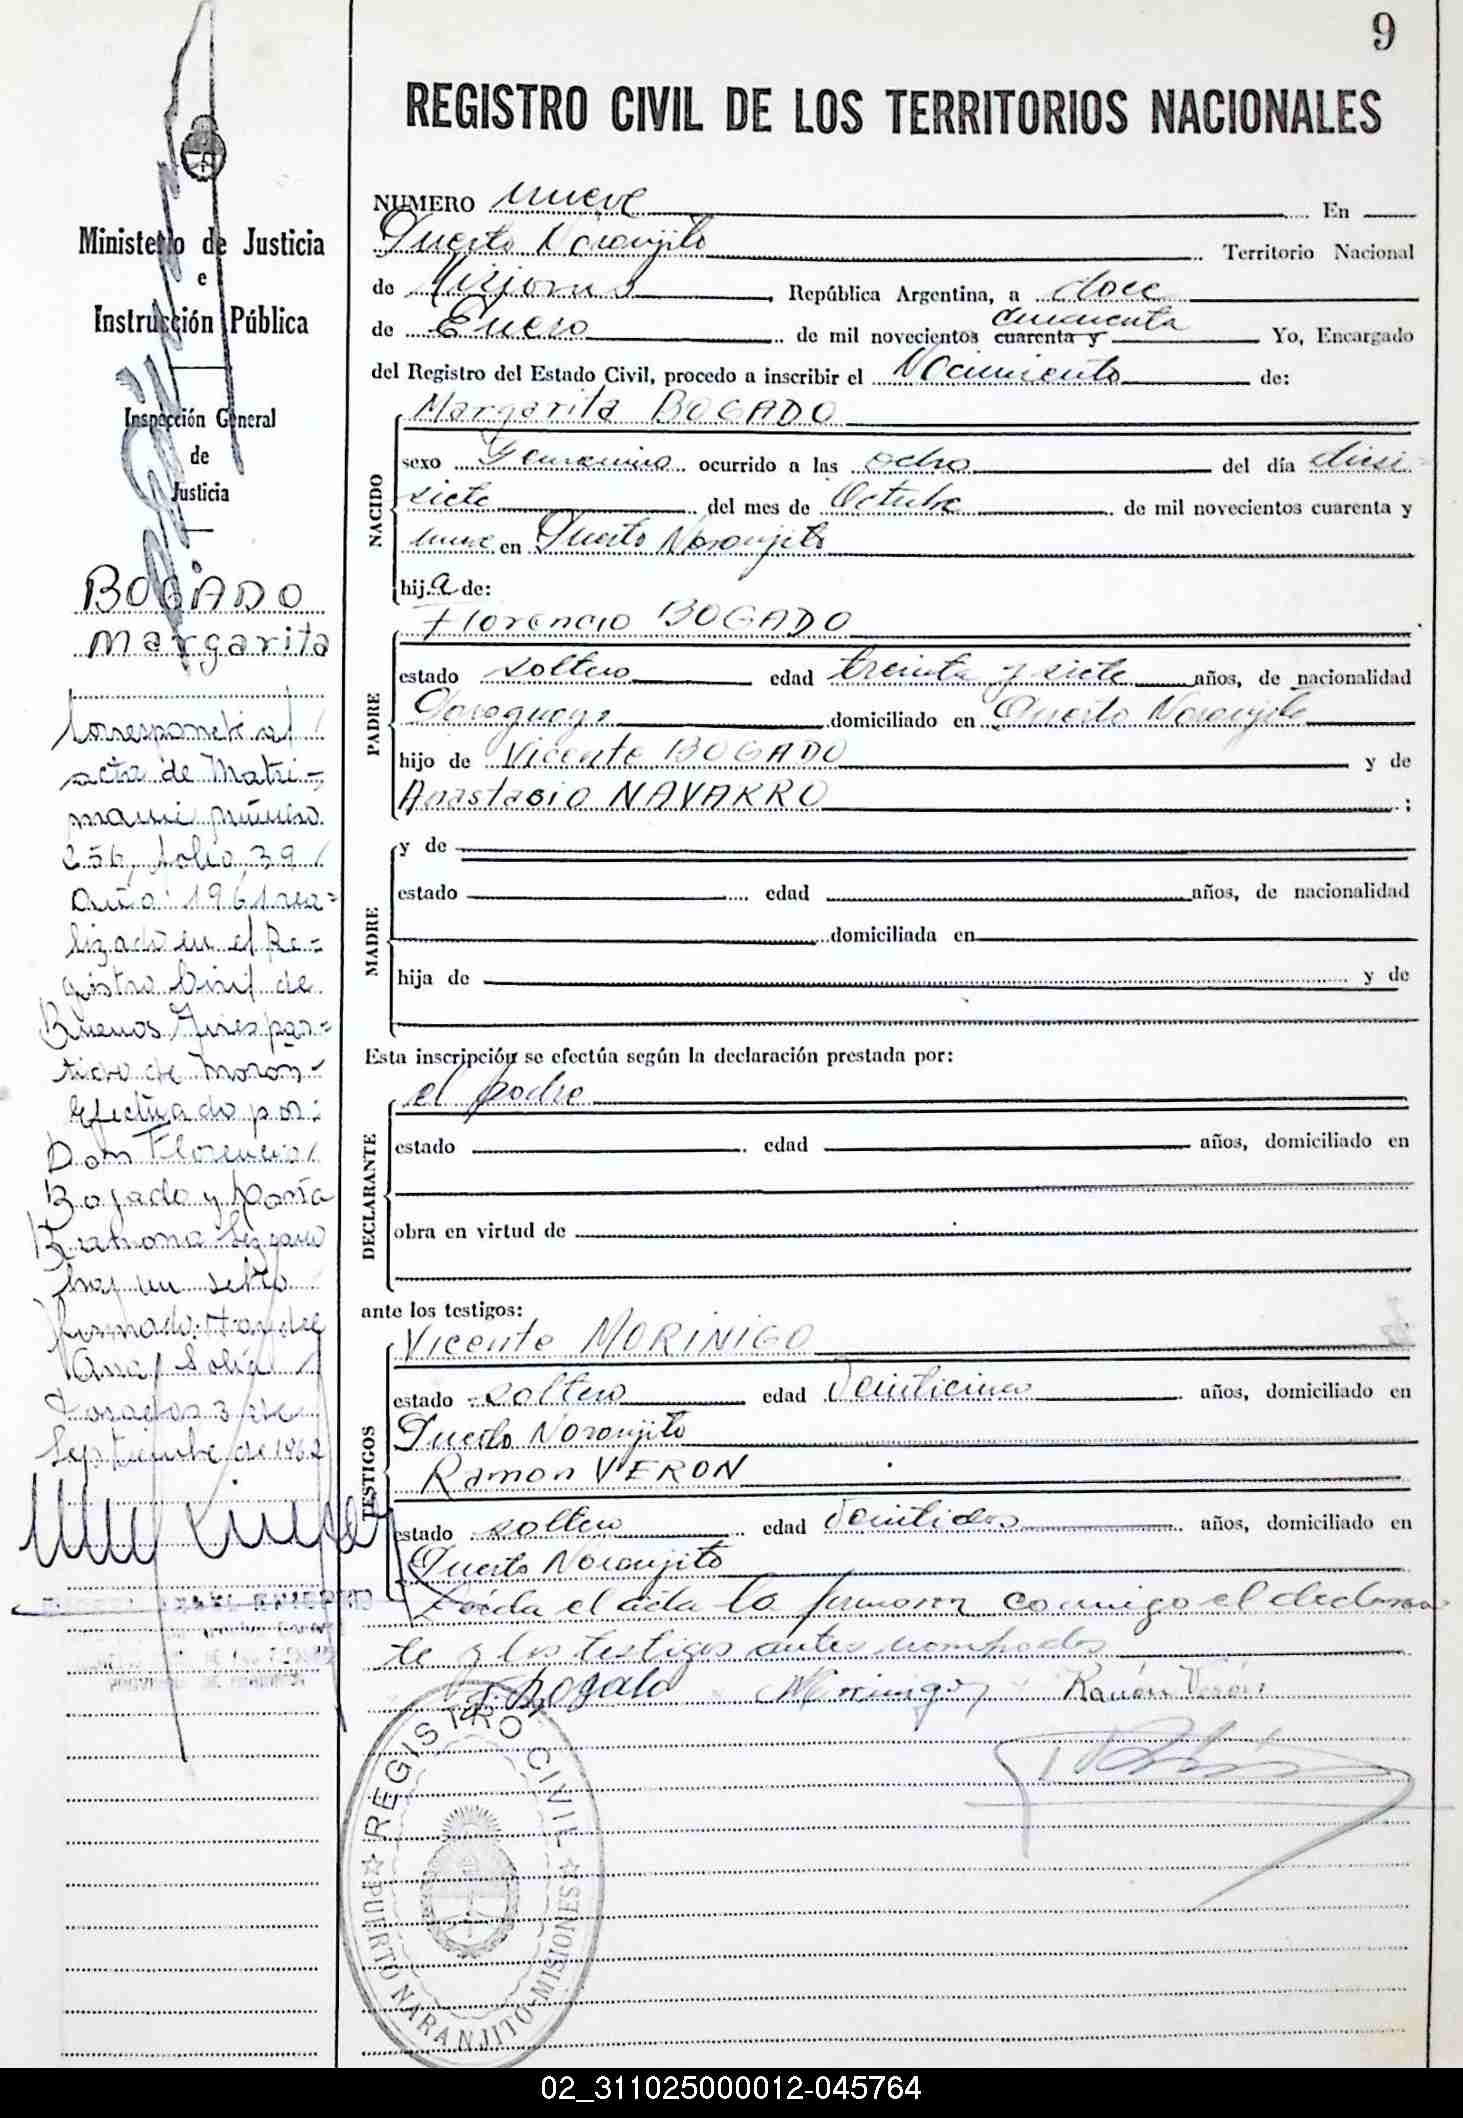 9
REGISTRO CIVIL DE LOS TERRITORIOS NACIONALES
Ministerio de Justicia
e
Instrucción Pública
Inspección General
de
Justicia
BOGADO
Margarita
Corresponde al
acta de Matri-
monio número
256, folio, 39
Año: 1961 rea=
lizado en el Re=
gistro Civil de
Buenos Aires par=
tido de Moron-
efectuado por:
Don Florencio
Bogado y María
hay un sello
firmado:
Posadas 3 de
Septiembre de 1962
NUMERO nueve En
Puerto Naranjito Territorio Nacional
de Misiones, República Argentina, a doce
de Enero de mil novecientos cuarenta y cincuenta Yo, Encargado
del Registro del Estado Civil, procedo a inscribir el Nacimiento de:
NACIDO
Margarita BOGADO
sexo Femenino ocurrido a las ocho del día diesi-
siete del mes de Octubre de mil novecientos cuarenta y
nueve en Puerto Naranjito
hija de:
PADRE
Florencio BOGADO
estado soltero edad treinta y siete años, de nacionalidad
Paraguaya domiciliado en Puerto Naranjito
hijo de Vicente BOGADO y de
Anastasia NAVARRO;
MADRE
y de
estado edad años, de nacionalidad
domiciliada en
hija de y de
Esta inscripción se efectúa según la declaración prestada por:
DECLARANTE
el padre
estado edad años, domiciliado en
obra en virtud de
ante los testigos:
TESTIGOS
Vicente MORINIGO
estado soltero edad Veinticinco años, domiciliado en
Puerto Naranjito
Ramon VERON
estado soltero edad Veintidos años, domiciliado en
Puerto Naranjito
Leida el acta la firmaron conmigo el declaran
te y los testigos antes nombrados
F. Bogado Morinigo Ramón Verón
REGISTRO CIVIL
PUERTO NARANJITO-MISIONES
02_311025000012-045764